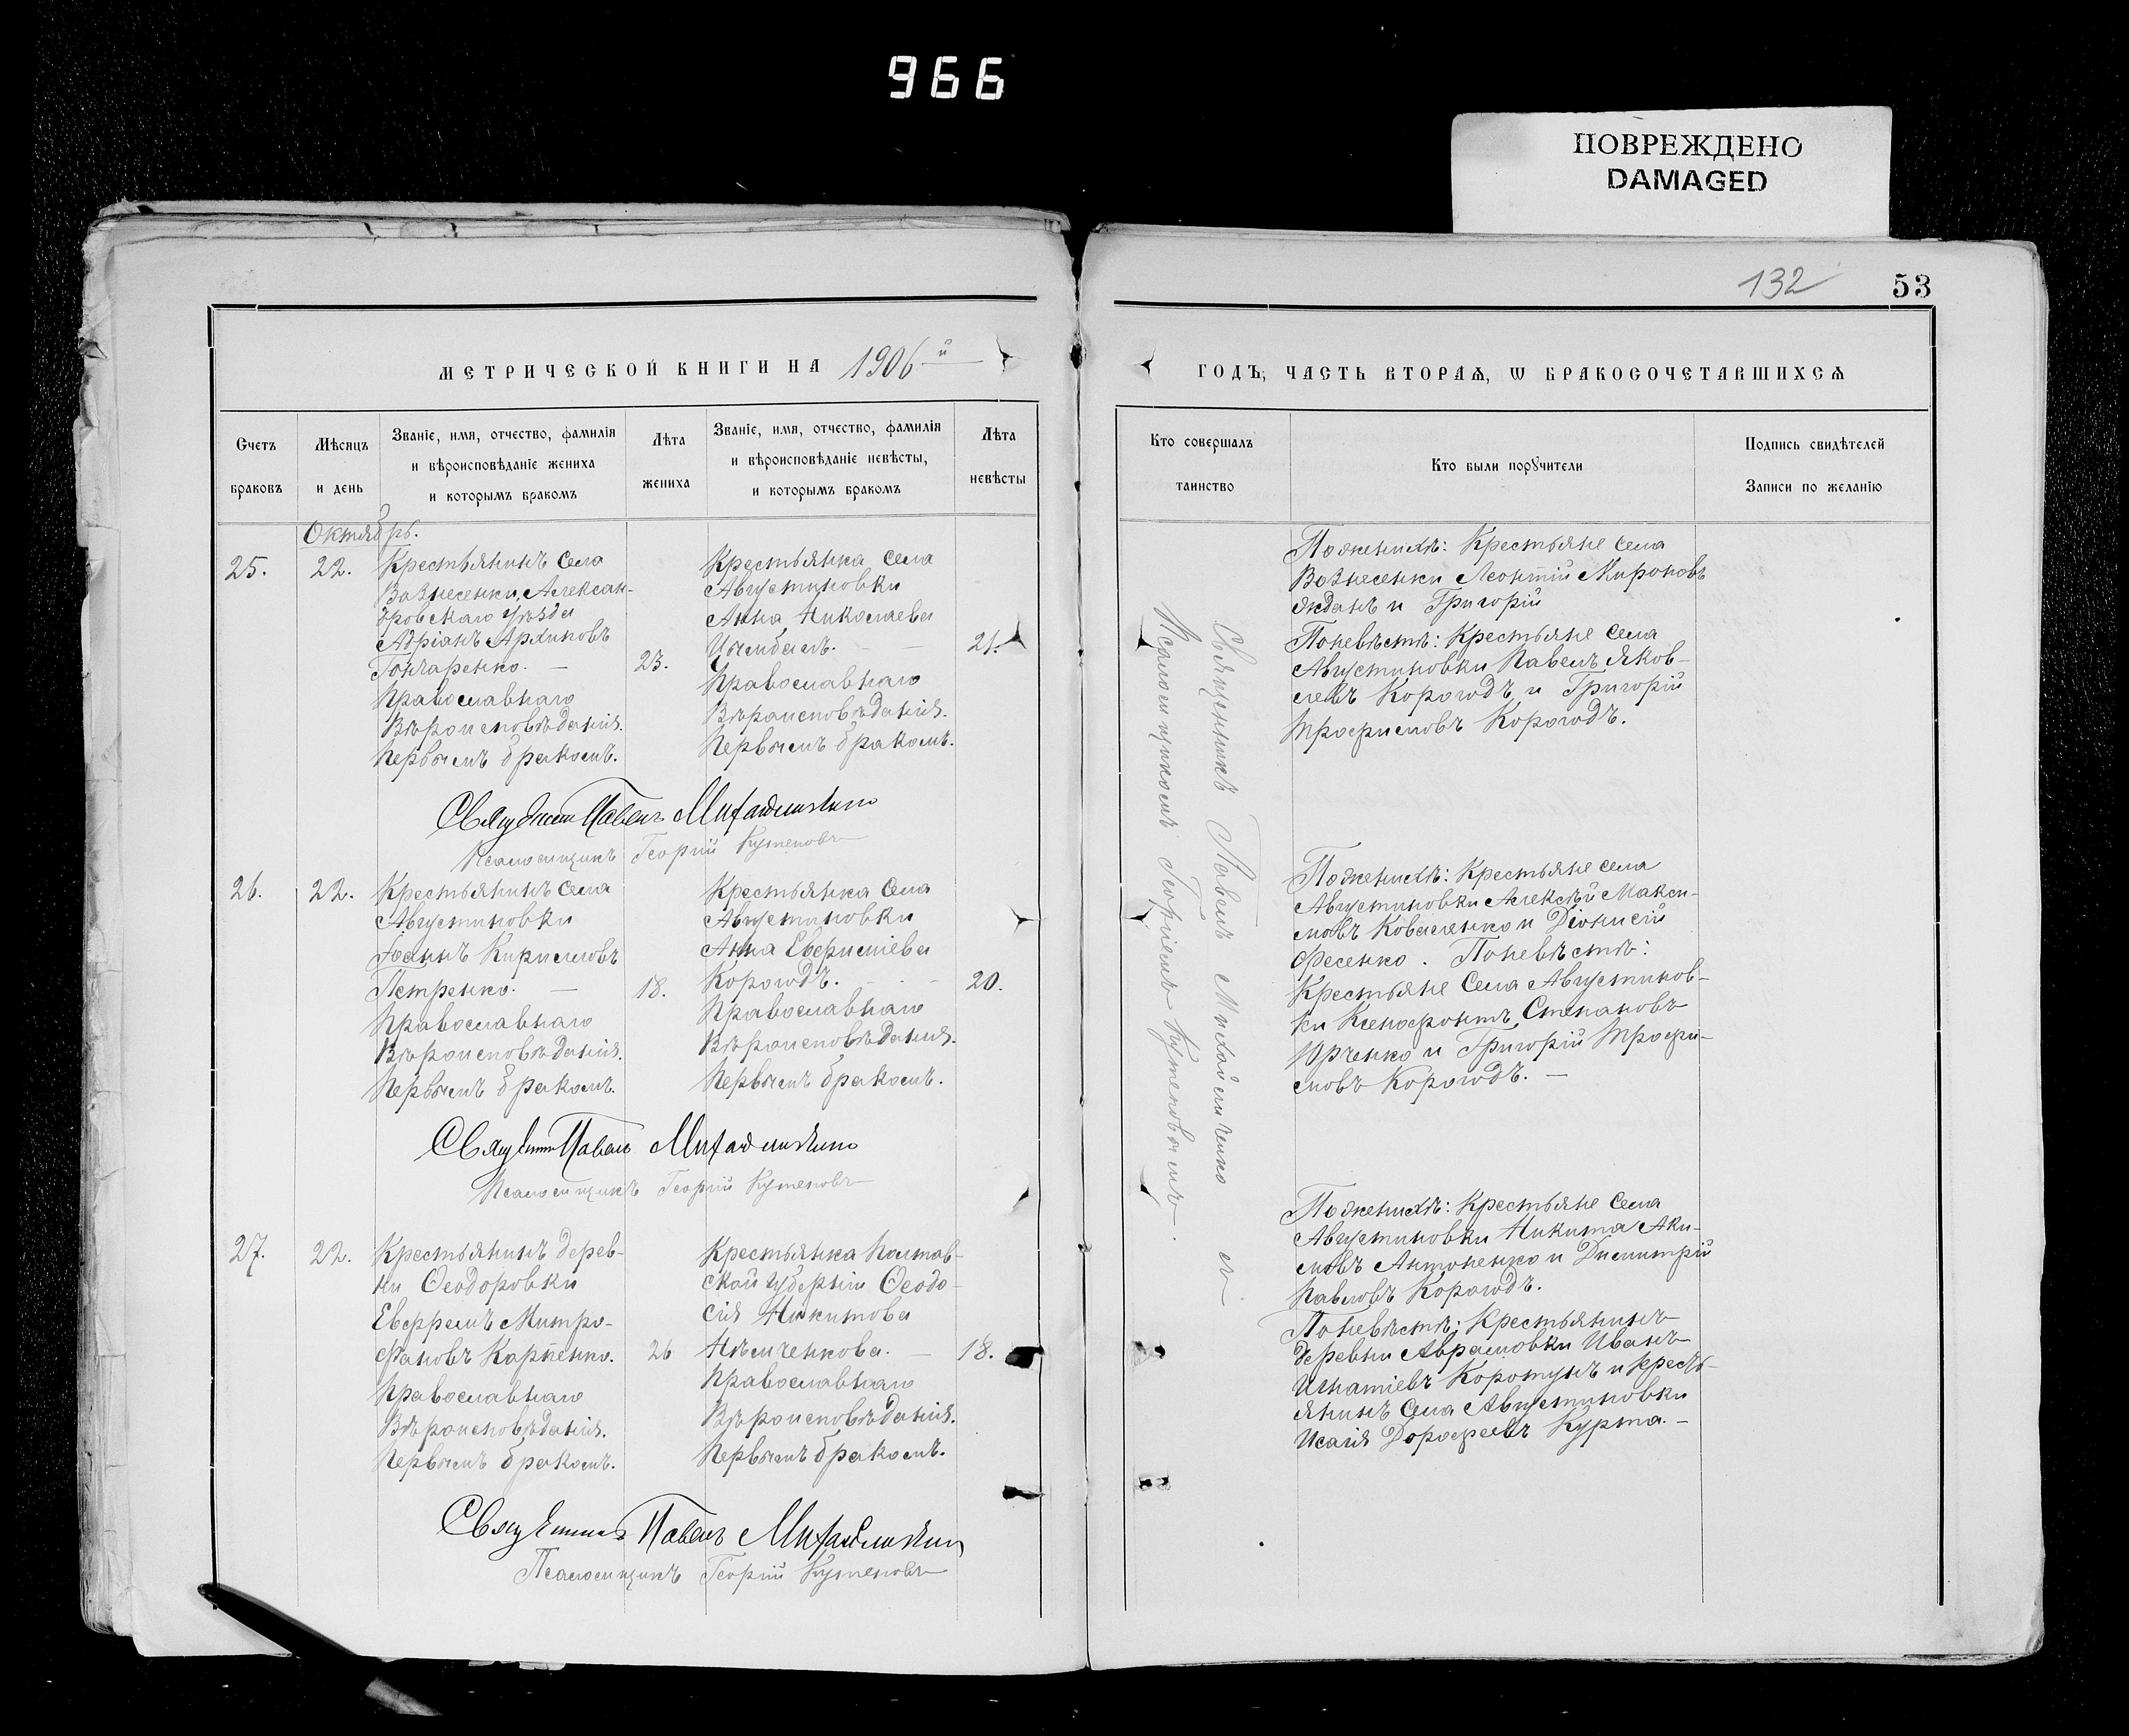 966
ПОВРЕЖДЕНО
DAMAGED
132
53
МЕТРИЧЕСКОЙ КНИГИ НА 1906й
ГОДЪ, ЧАСТЬ ВТОРАѦ, Ѡ БРАКОСОЧЕТАВШИХСѦ
Счетъ браковъ
Мѣсяцъ и день
Званіе, имя, отчество, фамилія
и вѣроисповѣданіе жениха
и которымъ бракомъ
Лѣта жениха
Званіе, имя, отчество, фамилія
и вѣроисповѣданіе невѣсты,
и которымъ бракомъ
Лѣта невѣсты
Кто совершалъ таинство
Кто были порꙋчители
Подпись свидѣтелей
Записи по желанію
Октябрь.
25.
22.
Крестьянинъ села
Вознесенки, Александ-
ровскаго уѣзда
Адріанъ Архиповъ
Гончаренко. —
Православнаго
Вѣроисповѣданія.
Первымъ бракомъ.
23.
Крестьянка села
Августиновки
Анна Николаева
Православнаго
Вѣроисповѣданія.
Первымъ бракомъ.
21.
Священникъ Павелъ Михайличенко
Псаломщикъ Георгій Кутеповъ
26.
22.
Крестьянинъ села
Августиновки
Іоаннъ Кирилловъ
Петренко. —
Православнаго
Вѣроисповѣданія.
Первымъ бракомъ.
18.
Крестьянка села
Августиновки
Анна Евфиміева
Корогодъ.
Православнаго
Вѣроисповѣданія.
Первымъ бракомъ.
20.
Священникъ Павелъ Михайличенко
Псаломщикъ Георгій Кутеповъ
27.
22.
Крестьянинъ дерев-
ни Ѳеодоровки
Евфремъ Митро-
фановъ Карпенко.
Православнаго
Вѣроисповѣданія.
Первымъ бракомъ.
26
Крестьянка Полтав-
ской губерніи Ѳеодо-
сія Никитова
Нѣмченкова. —
Православнаго
Вѣроисповѣданія.
Первымъ бракомъ.
18.
Священникъ Павелъ Михайличенко
Псаломщикъ Георгій Кутеповъ
Священникъ Павелъ Михайличенко съ
Псаломщикомъ Георгіемъ Кутеповымъ.
По женихѣ: Крестьяне села
Вознесенки Леонтій Мироновъ
Жданъ и Григорій
По невѣстѣ: Крестьяне села
Августиновки Павелъ Яков-
левъ Корогодъ и Григорій
Трофимовъ Корогодъ.
По женихѣ: Крестьяне села
Августиновки Алексѣй Макси-
мовъ Коваленко и Діонисій
Фесенко. По невѣстѣ:
Крестьяне села Августинов-
ки Ксенофонтъ Степановъ
Юрченко и Григорій Трофи-
мовъ Корогодъ. —
По женихѣ: Крестьяне села
Августиновки Никита Аки-
мовъ Антоненко и Димитрій
Павловъ Корогодъ.
По невѣстѣ: Крестьянинъ
деревни Аврамовки Иванъ
Игнатіевъ Коротунъ и крест-
янинъ села Августиновки
Исаія Дорофеевъ Курта. —